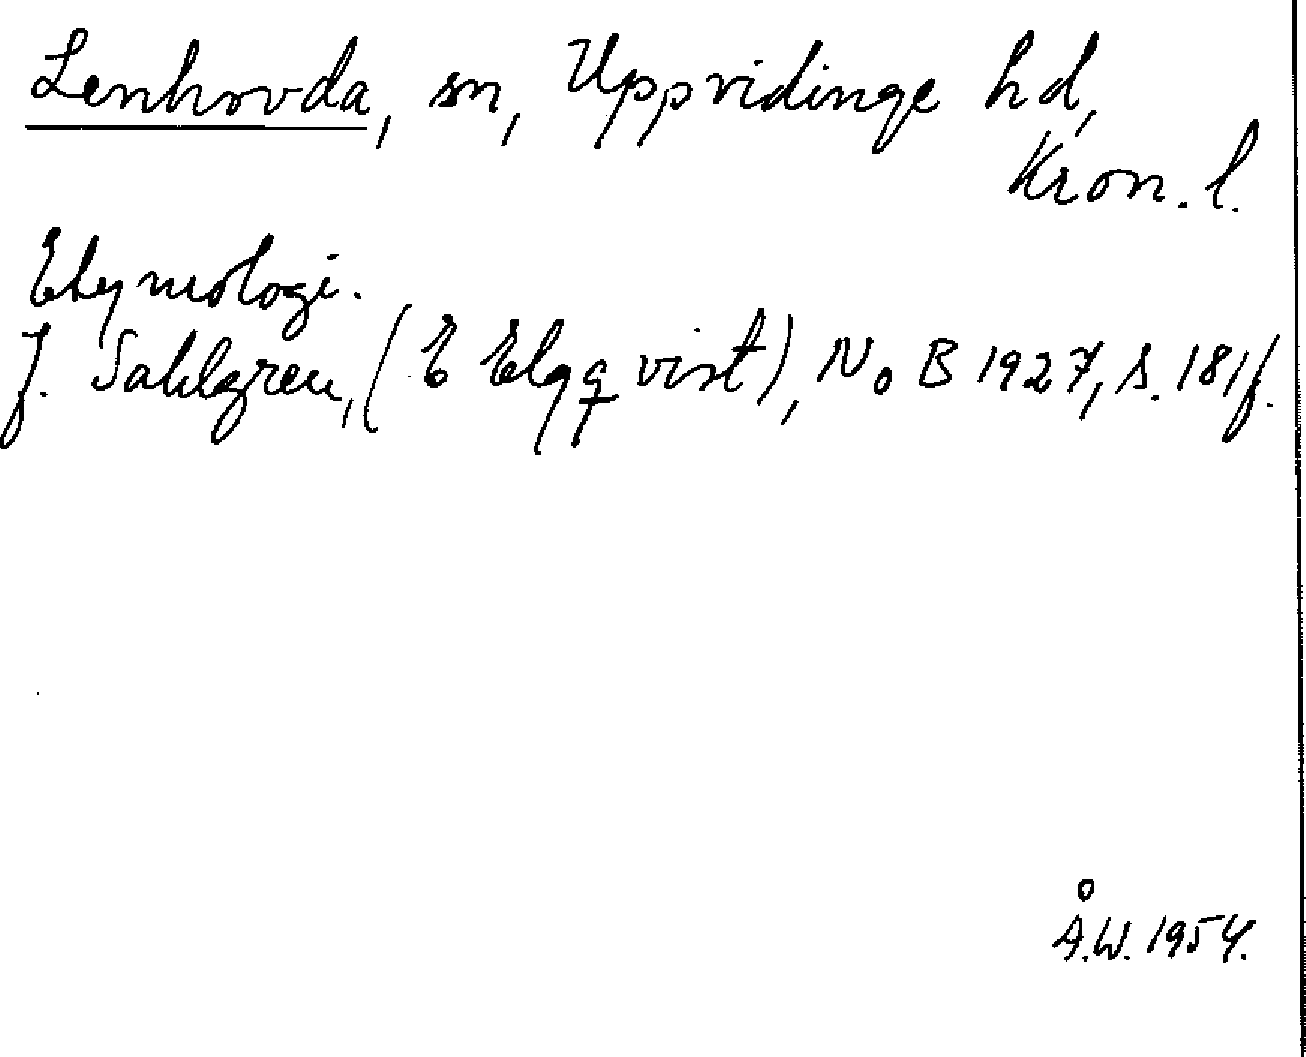 Lenhovda, sn, Uppvidinge hd,
Kron. l.
Etymologi.
J. Sahlgren, (E Elgqvist), NoB 1927, s. 181f.
Å.W. 1954.